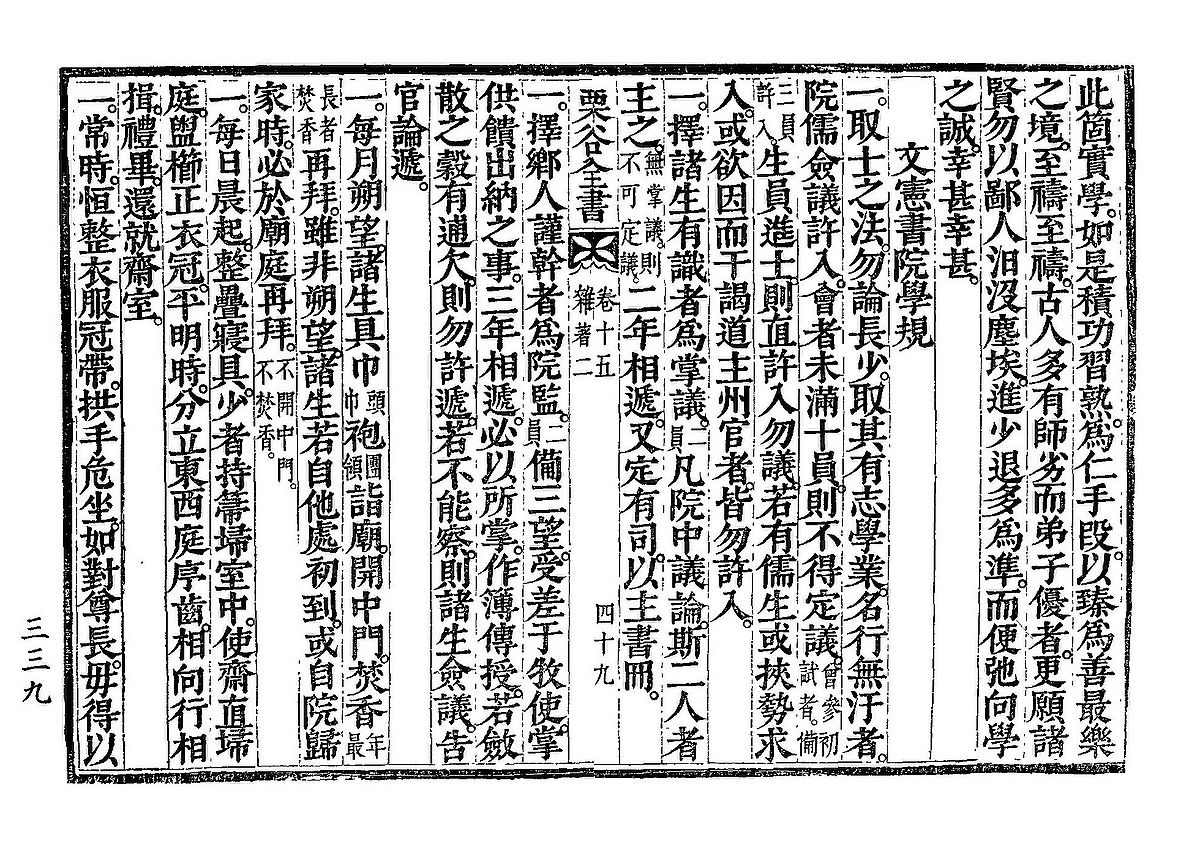 此箇實學。如是積功習熟。爲仁手段。以臻爲善最樂
之境。至禱至禱。古人多有師劣而弟子優者。更願諸
賢勿以鄙人汩沒塵埃。進少退多爲準。而便弛向學
之誠。幸甚幸甚。
文憲書院學規
一。取士之法。勿論長少。取其有志學業。名行無汙者。
院儒僉議許入。會者未滿十員。則不得定議。曾參初試者。備
三員許入。生員進士則直許入勿議。若有儒生或挾勢求
入。或欲因而干謁道主州官者。皆勿許入。
一。擇諸生有識者爲掌議。二員凡院中議論。斯二人者
主之。無掌議。則不可定議。二年相遞。又定有司。以主書冊。
栗谷全書 卷十五 雜著二 四十九
一。擇鄉人謹幹者爲院監。二員備三望。受差于牧使。掌
供饋出納之事。三年相遞。必以所掌。作簿傳授。若斂
散之穀有逋欠。則勿許遞。若不能察。則諸生僉議。告
官論遞。
一。每月朔望。諸生具巾頭巾袍團領詣廟。開中門。焚香年最
長者焚香再拜。雖非朔望。諸生若自他處初到。或自院歸
家時。必於廟庭再拜。不開中門。不焚香。
一。每日晨起。整疊寢具。少者持箒埽室中。使齋直埽
庭。盥櫛正衣冠。平明時。分立東西庭序齒。相向行相
揖。禮畢。還就齋室。
一。常時。恒整衣服冠帶。拱手危坐。如對尊長。毋得以
三三九